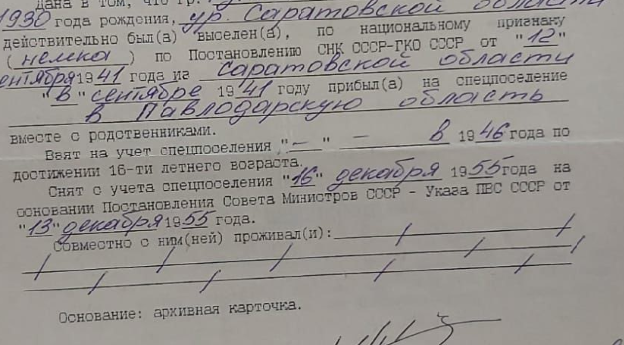 Дана в том, что гр.
1930 года рождения, ур. Саратовской области
действительно был(а) выселен(а), по национальному признаку
(немка) по Постановлению СНК СССР-ГКО СССР от "12"
сентября 1941 года из Саратовской области
"в" сентябре 1941 году прибыл(а) на спецпоселение
в Павлодарскую область
вместе с родственниками.
Взят на учет спецпоселения "—" — в 1946 года по
достижении 16-ти летнего возраста.
Снят с учета спецпоселения "16" декабря 1955 года на
основании Постановления Совета Министров СССР - Указа ПВС СССР от
"13" декабря 1955 года.
Совместно с ним(ней) проживал(и):
Основание: архивная карточка.